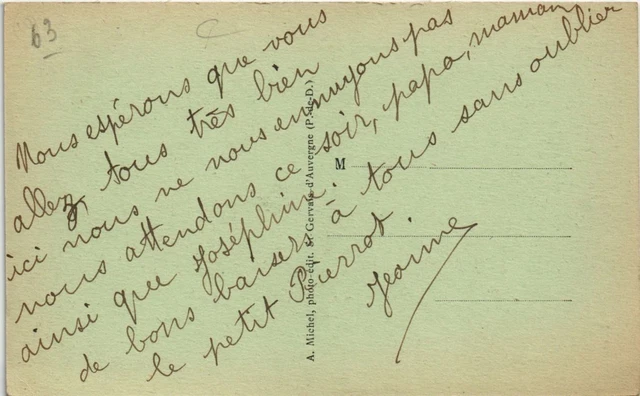 63
Nous espérons que vous
allez tous très bien
ici nous ne nous ennuyons pas
nous attendons ce soir, papa, maman
ainsi que Joséphine.
de bons baisers à tous sans oublier
le petit Pierrot.
Jeanne
M
A. Michel, photo-édit. St Gervais-d'Auvergne (P.-de-D.)